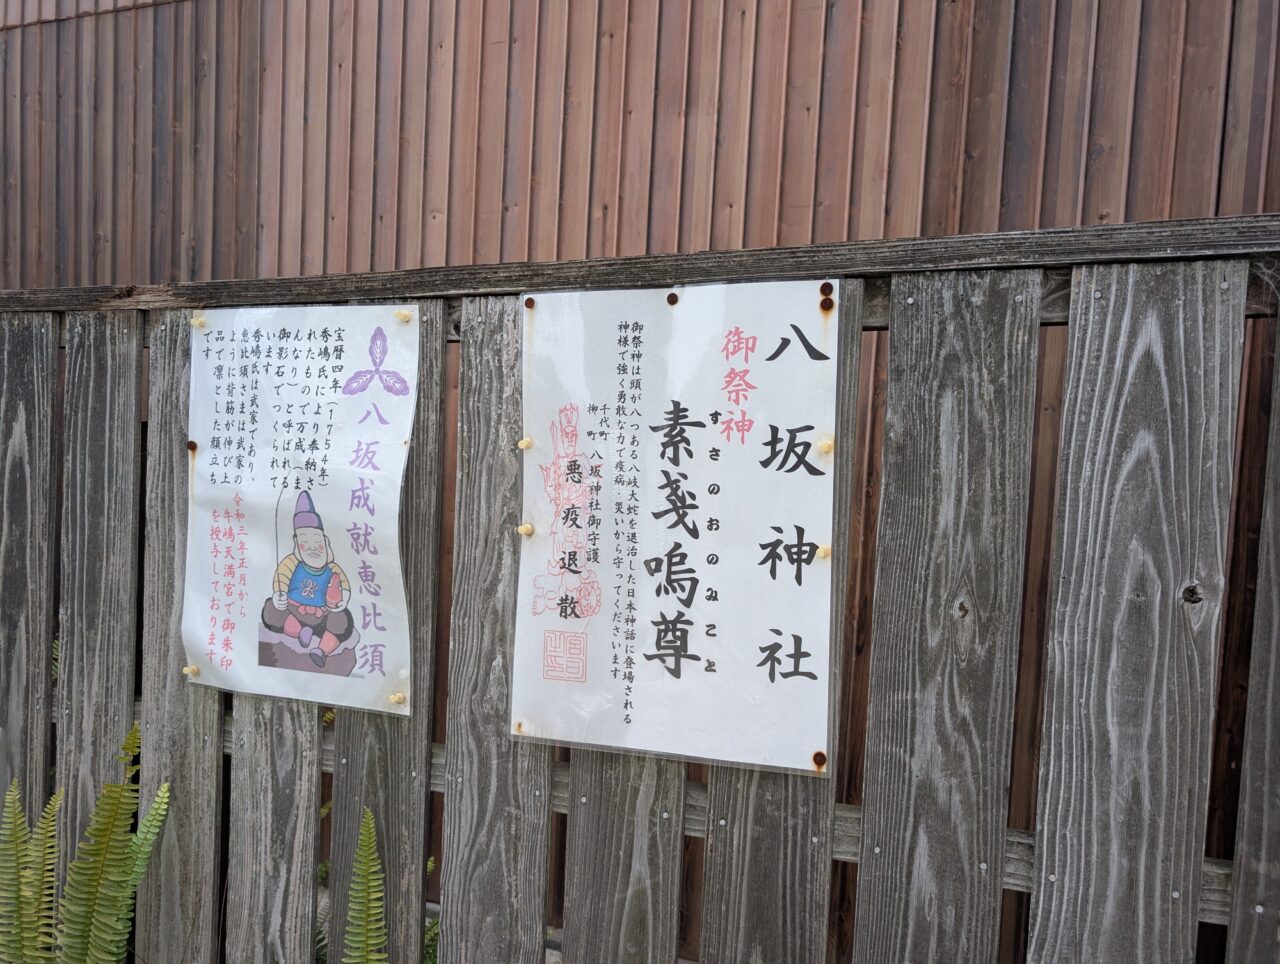 八坂神社
御祭神
すさのおのみこと
素戔嗚尊
御祭神は頭が八つある八岐大蛇を退治した日本神話に登場される
神様で強く勇敢な力で疫病・災いから守ってくださいます
千代町
柳町
八坂神社御守護
悪疫退散
八坂成就恵比須
宝暦四年(1754年)
秀嶋氏により奉納さ
れたもので万成(ま
んなり)と呼ばれる
御影石でつくられて
います
秀嶋氏は武家であり、
恵比須さまは武家の
ように背筋が伸び上
品で凛とした顔立ち
です
令和三年正月から
牛嶋天満宮で御朱印
を授与しております